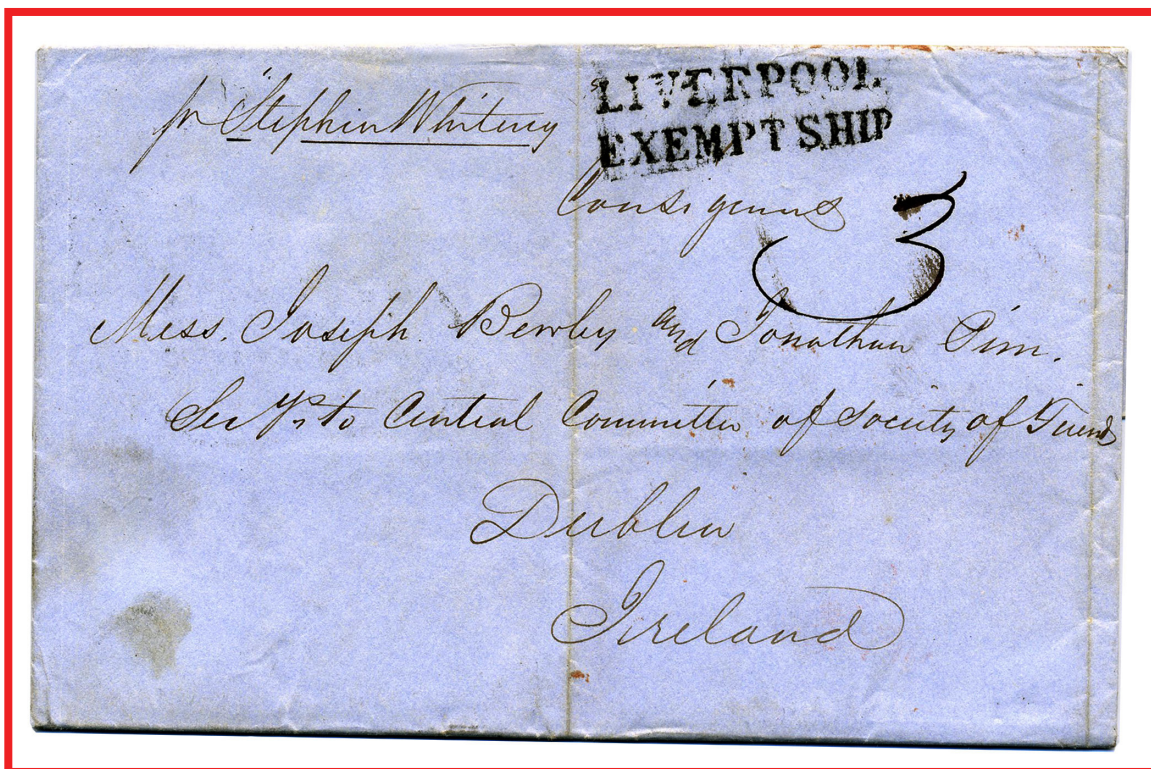 pr Stephen Whitney
LIVERPOOL
EXEMPT SHIP
Consignees
3
Mess. Joseph Bewley and Jonathan Pim.
Secys to Central Committee of Society of Friends
Dublin
Ireland